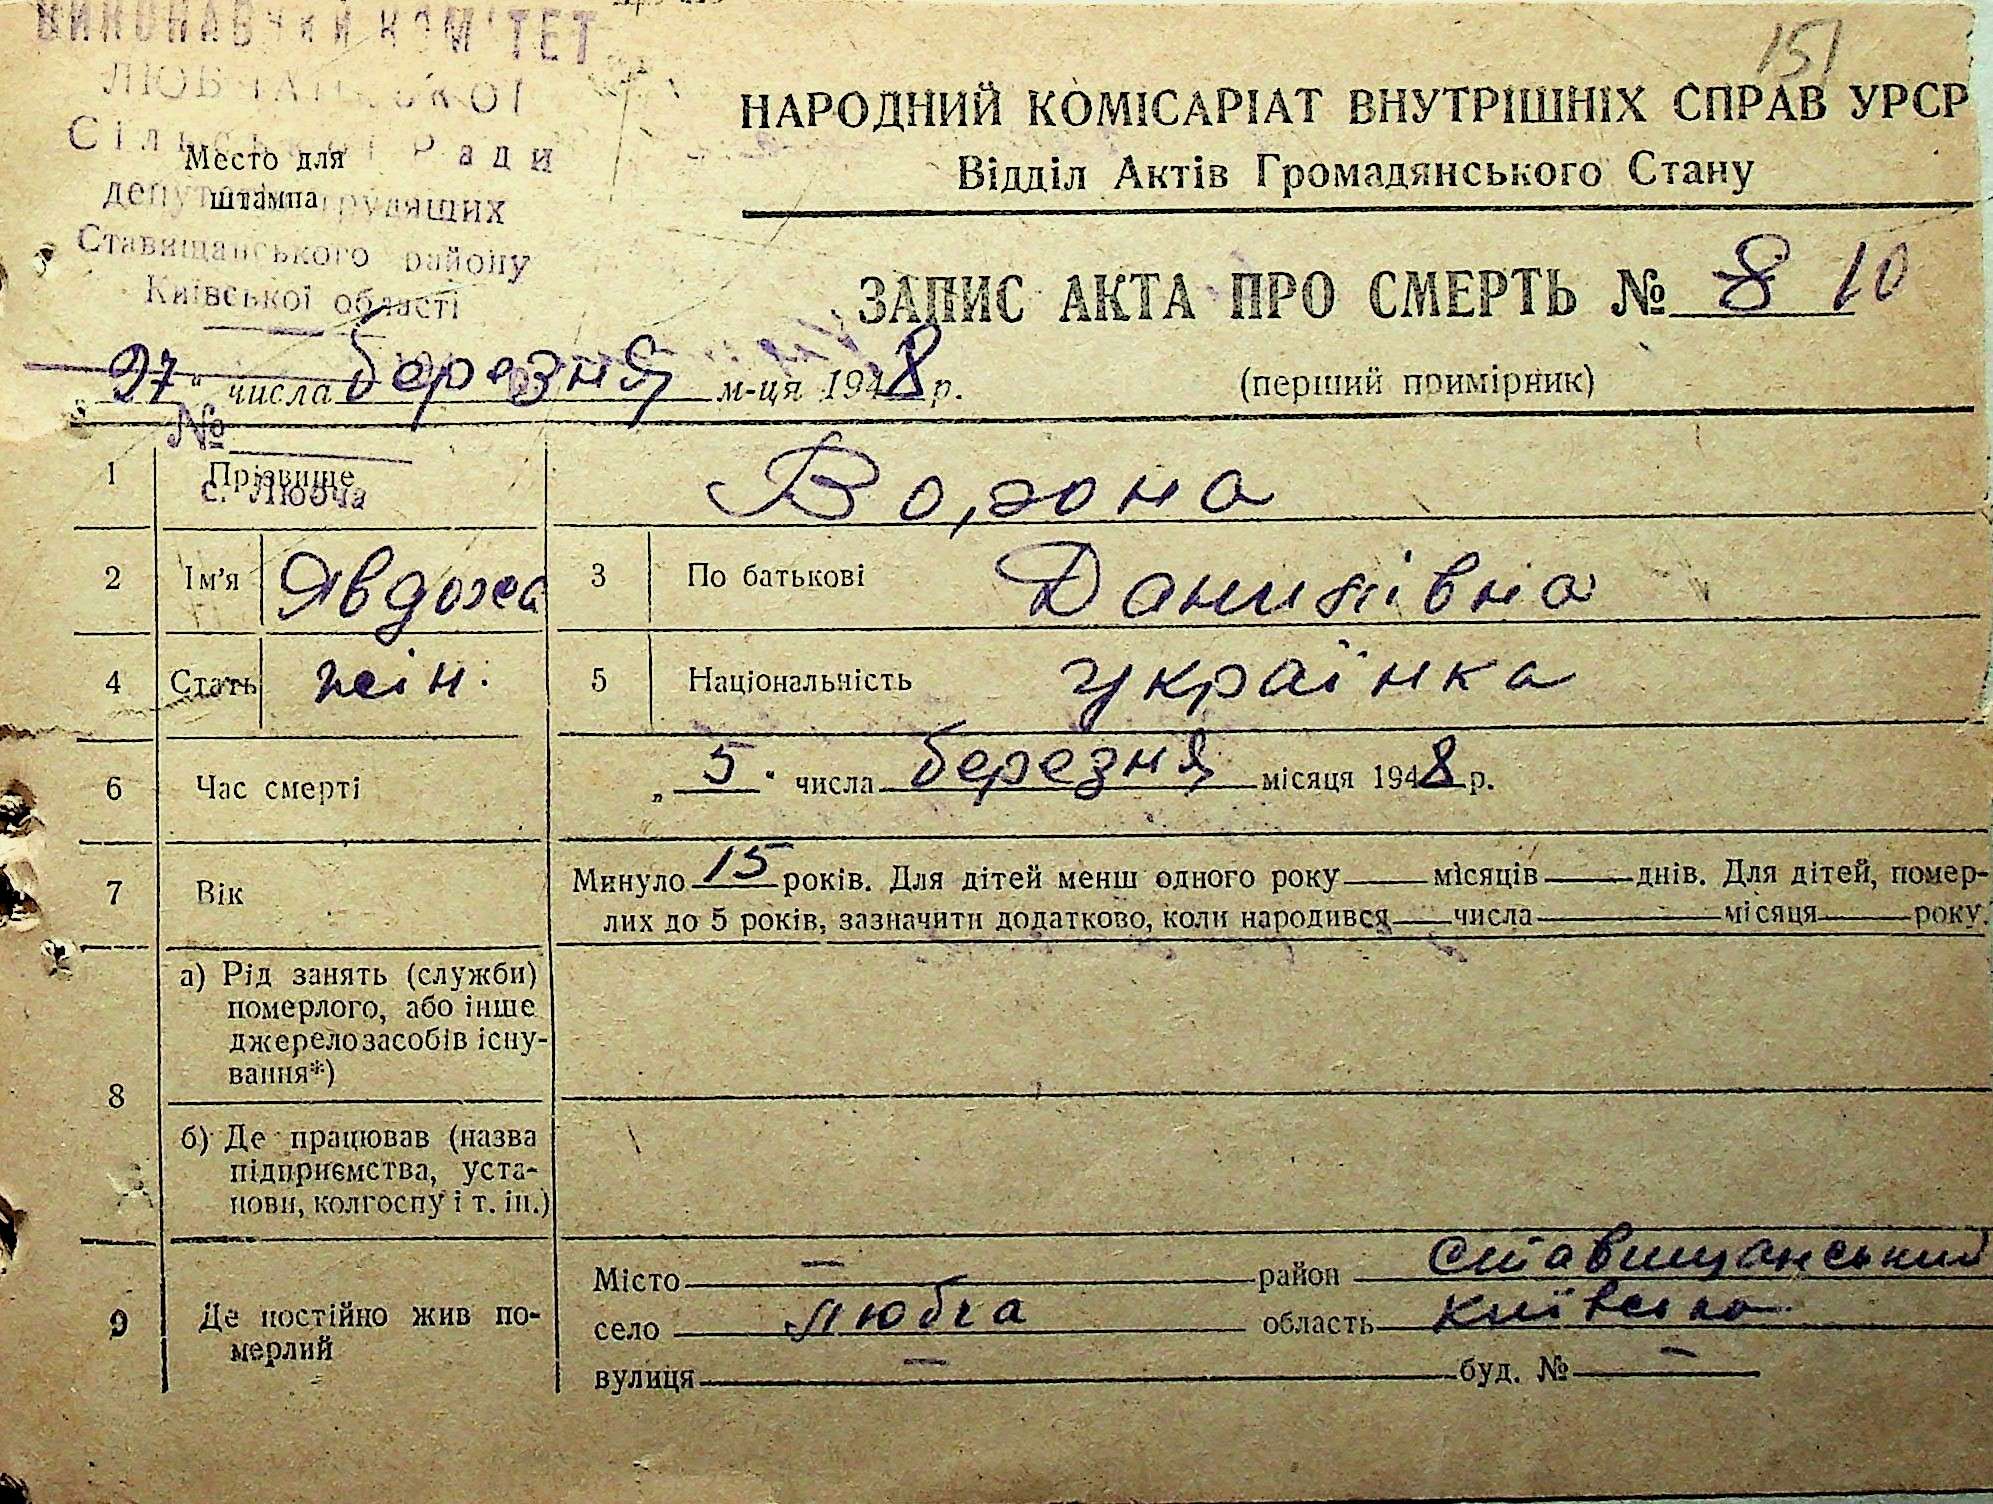 ВИКОНАВЧИЙ КОМІТЕТ
Сільської Ради
депутатів трудящих
Ставищанського району
Київської області
Место для
штампа
151
НАРОДНИЙ КОМІСАРІАТ ВНУТРІШНІХ СПРАВ УРСР
Відділ Актів Громадянського Стану
ЗАПИС АКТА ПРО СМЕРТЬ № 8 10
(перший примірник)
„27“ числа березня м-ця 1948 р.
№
с. Любча
1 Прізвище
2 Ім'я Явдоха 3 По батькові Данилівна
4 Стать жін. 5 Національність українка
6 Час смерті „5" числа березня місяця 1948 р.
7 Вік Минуло 15 років. Для дітей менш одного року — місяців — днів. Для дітей, помер-
лих до 5 років, зазначити додатково, коли народився — числа — місяця — року.
8 а) Рід занять (служби)
померлого, або інше
джерело засобів існу-
вання*)
б) Де працював (назва
підприємства, уста-
нови, колгоспу і т. ін.)
9 Де постійно жив по-
мерлий
Місто — район Ставищанський
село Любча область Київська
вулиця — буд. № —